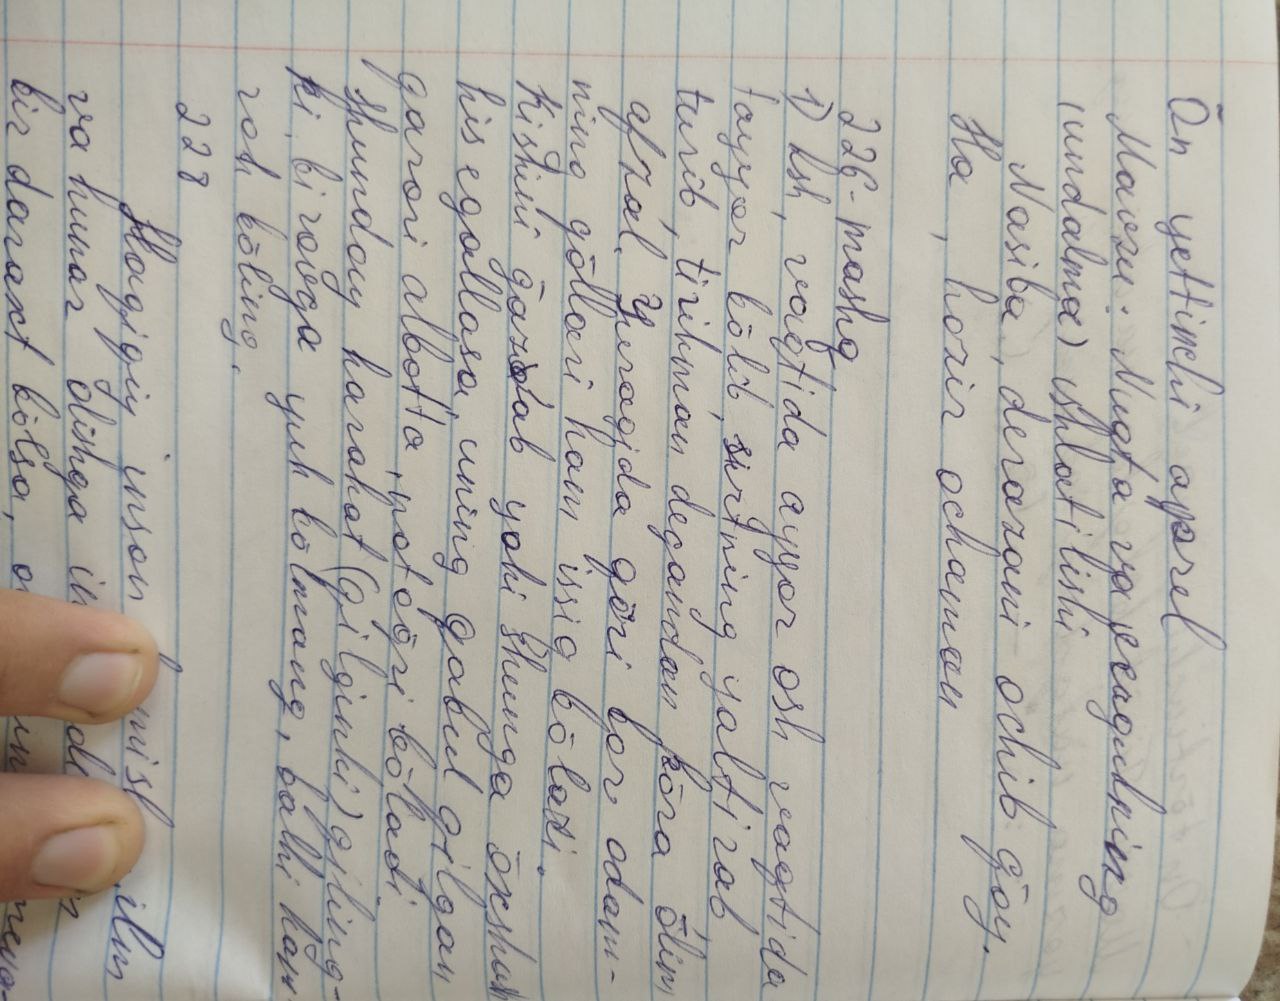 Ōn yettinchi aprel
Mavzu: Nuqta va yergulning
(undalma) ishlatilishi
Nasiba, derazani ochib qōy.
Ha, hozir ochaman
226-mashq
1) Ish, vaqtida ayyor osh vaqtida
tayyor bōlib, sirtning yaltirab
turib, tirikman degandan kōra ōlim
afzal. Yuragida gōri bor odam-
ning qōllari ham issiq bōladi.
Kishini ğazab yoki shunga ōxshash
his egallasa, uning qabul qilgan
qarori albatta notōğri bōladi.
Shunday harakat (qilginki) qiling-
ki, birovga yuk bōlmang, balki ham-
roh bōling.
228
Haqiqiy inson ilm
va hunar
bir daraxt bōlsa,